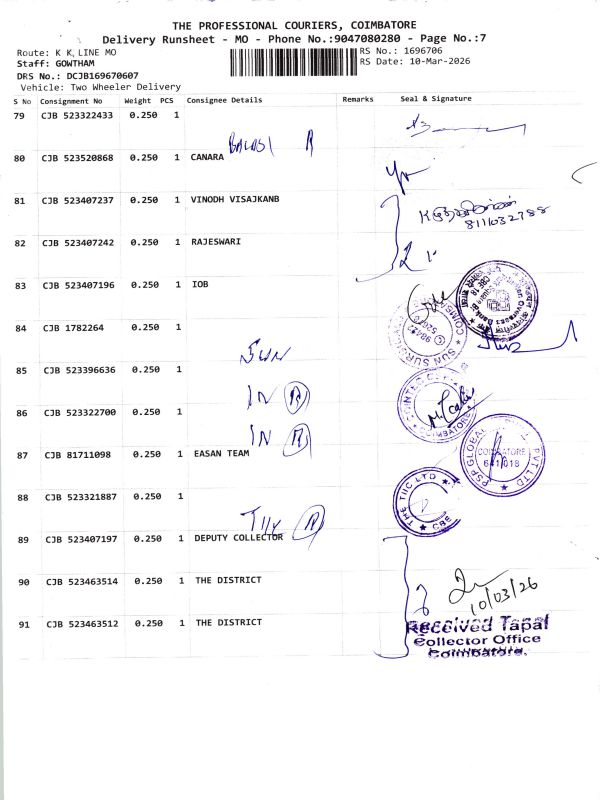 THE PROFESSIONAL COURIERS, COIMBATORE
Delivery Runsheet - MO - Phone No.:9047080280 - Page No.:7
Route: K K, LINE MO
RS No.: 1696706
Staff: GOWTHAM
RS Date: 10-Mar-2026
DRS No.: DCJB169670607
Vehicle: Two Wheeler Delivery
S No Consignment No Weight PCS Consignee Details Remarks Seal & Signature
79 CJB 523322433 0.250 1
80 CJB 523520868 0.250 1 CANARA
81 CJB 523407237 0.250 1 VINODH VISAJKANB
8111032788
82 CJB 523407242 0.250 1 RAJESWARI
83 CJB 523407196 0.250 1 IOB
84 CJB 1782264 0.250 1
SUN
85 CJB 523396636 0.250 1
IN R
86 CJB 523322700 0.250 1
IN R
87 CJB 81711098 0.250 1 EASAN TEAM
PSP GLOBAL PVT LTD
COIMBATORE
641 018
88 CJB 523321887 0.250 1
THE TIIC LTD
CBE
89 CJB 523407197 0.250 1 DEPUTY COLLECTOR
90 CJB 523463514 0.250 1 THE DISTRICT
10/03/26
91 CJB 523463512 0.250 1 THE DISTRICT
Received Tapal
Collector Office
Coimbatore.